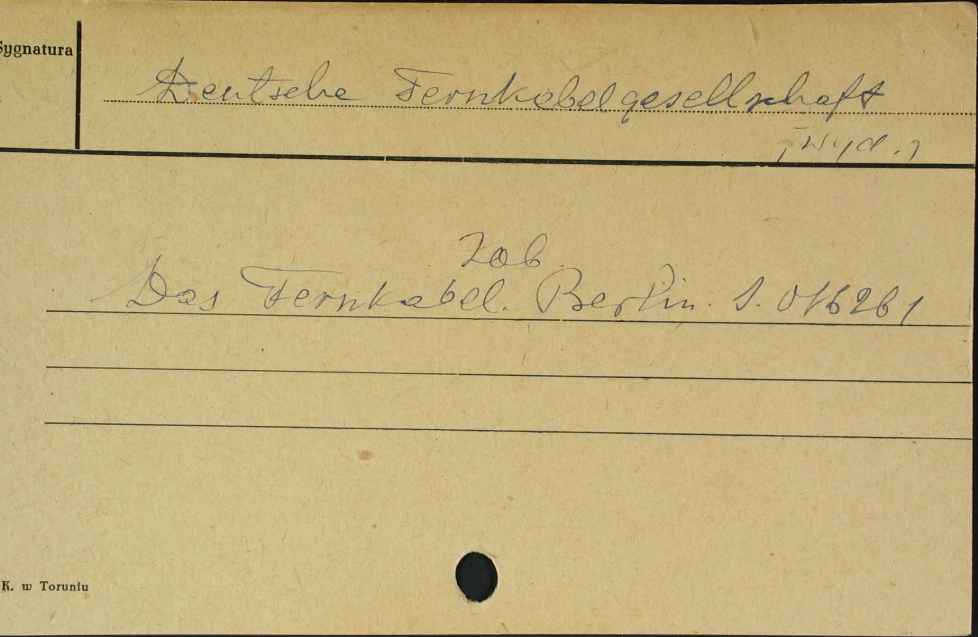 Sygnatura
Deutsche Fernkabelgesellschaft
[Wyd.]
Zob.
Das Fernkabel. Berlin. S. 016261
K. w Toruniu